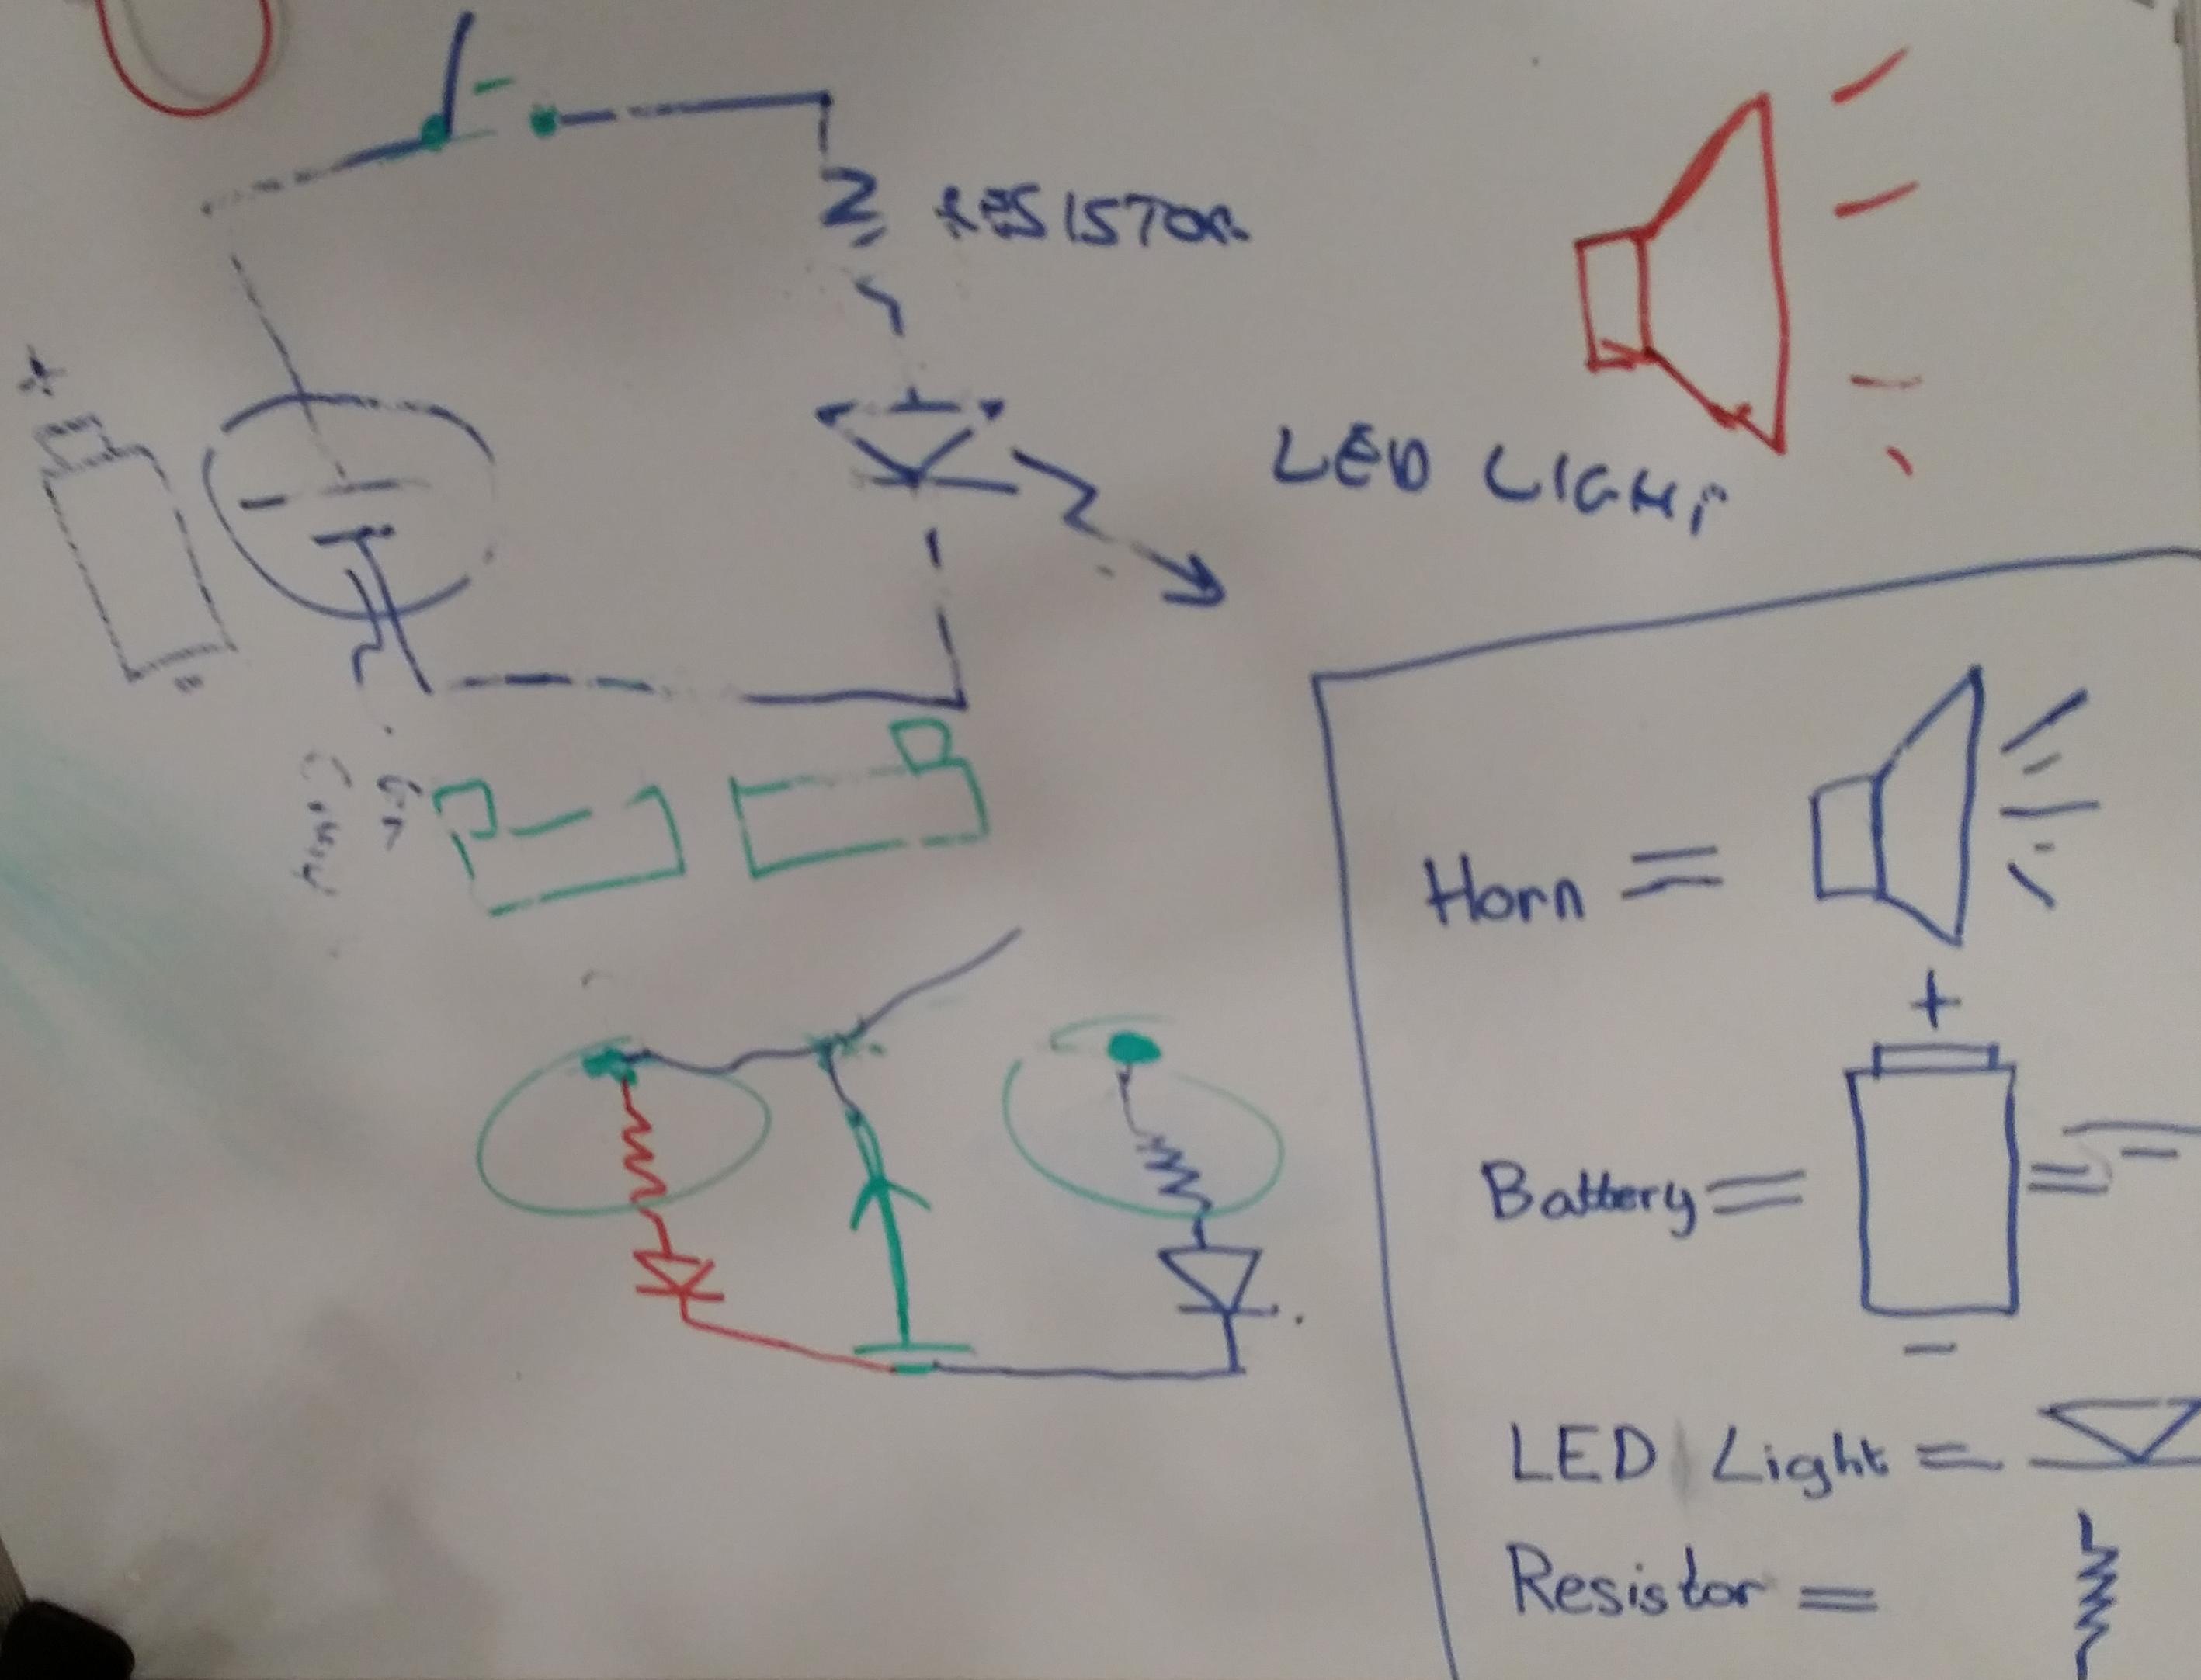 RESISTOR
LED LIGHT
+
Horn =
+
Battery = =
-
LED Light =
Resistor =